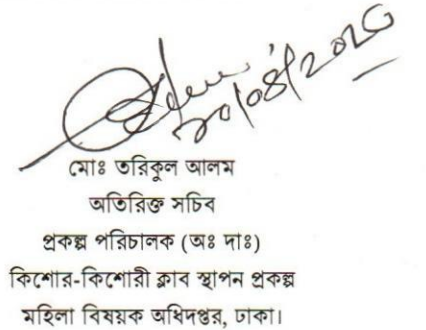 মোঃ তরিকুল আলম
অতিরিক্ত সচিব
প্রকল্প পরিচালক (অঃ দাঃ)
কিশোর-কিশোরী ক্লাব স্থাপন প্রকল্প
মহিলা বিষয়ক অধিদপ্তর, ঢাকা।